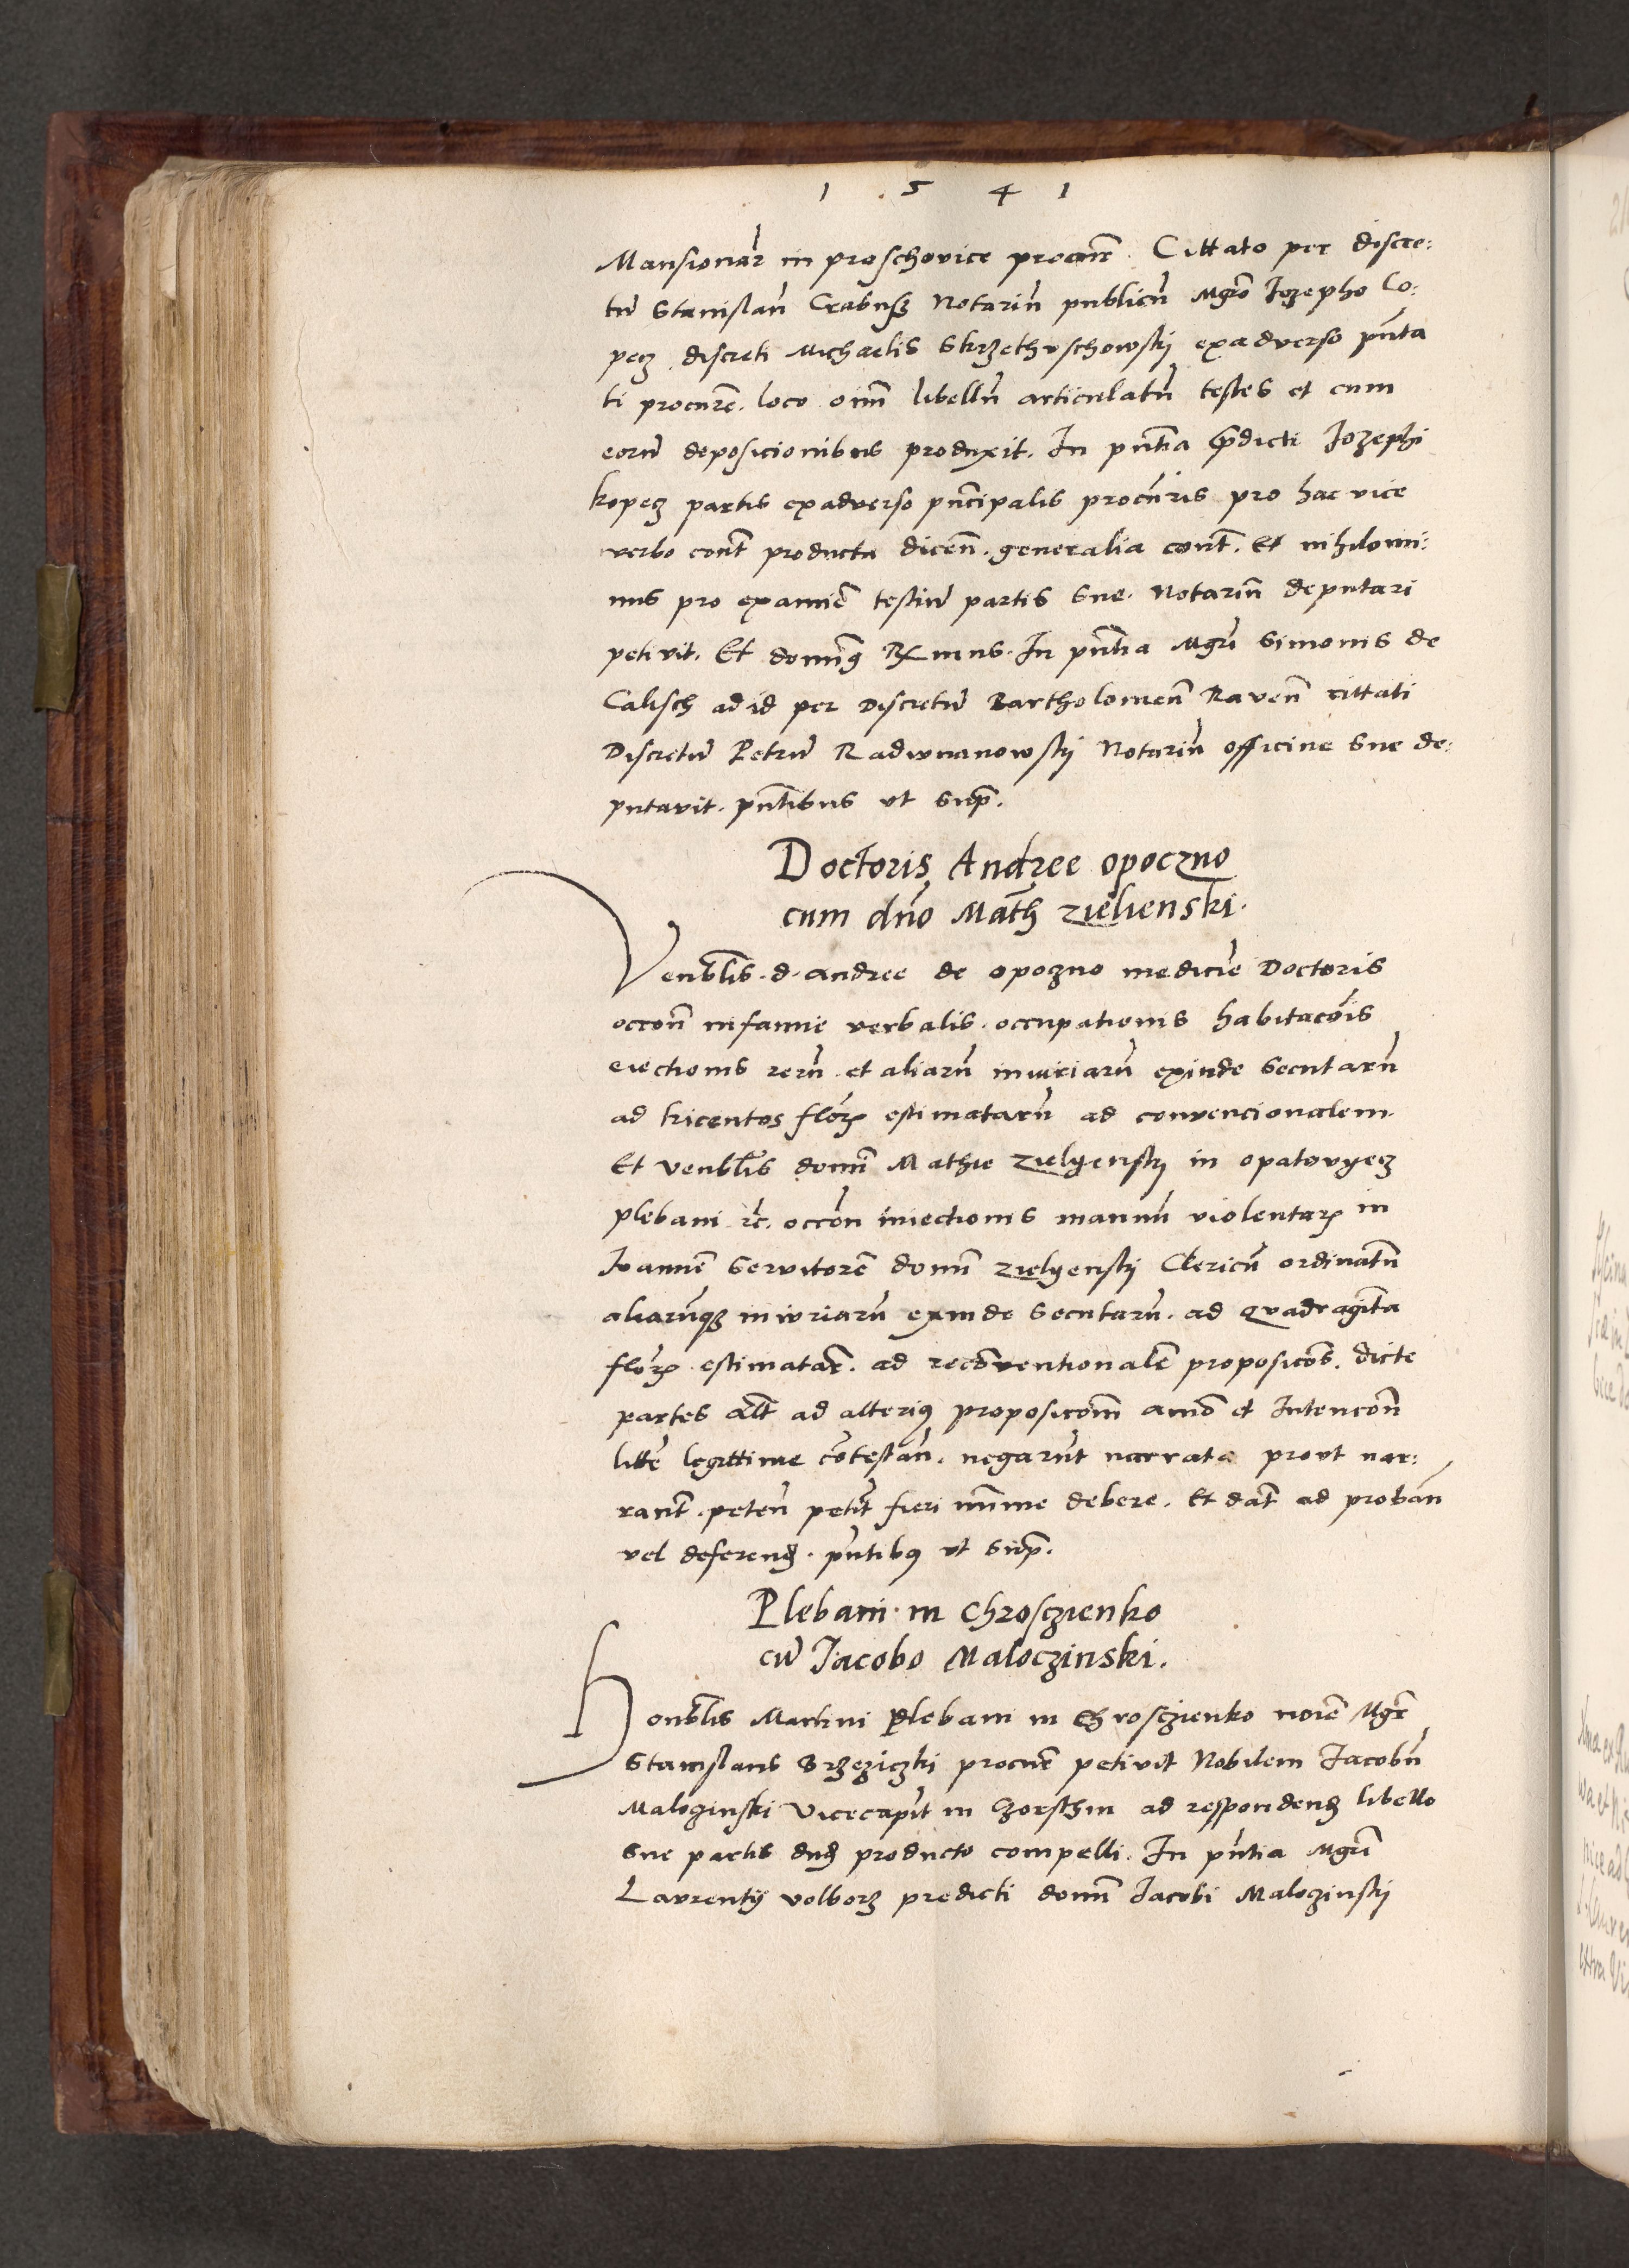 1 5 4 1
Mansionar̄ in proschovice procur̄e. Cittato per discre:
tū Stanislaū Crabusz Notariū publicū Mgr̄o Jozepho Co:
pecz discreti Michaelis Skrzethuschowskÿ exadverso pn̄ta
ti procur̄e. loco om̄ libellū articulatū testes et cum
eorū deposicionibus produxit. In pn̄tia p̄dicti Jozephi
kopecz partis exadverso pn̄cipalis procur̄is pro hac vice
verbo cont̄ producta dicen̄. generalia cont̄. Et nihilomi:
nus pro exami͞e testiū partis sue. Notariū deputari
petivit. Et dominꝫ Rx̄mus. In pn̄tia Mgr̄i Simonis de
Calisch ad id per Discretū Bartholomeū Raven̄ cittati
Discretū Petrū Radwanowskÿ Notariū officine sue de:
putavit. pn̄tibus vt sup̄.
Doctoris Andree opoczno
cum dn̄o Math̄ zielienski.
Venbl̄is. d. andree de opozno medici͞e Doctoris
occon̄ infamie verbalis. occupationis habitaco͞is
eiectionis rerū et aliarū iniuriarū exinde secutarū
ad tricentos flor̄ estimatarū ad convencionalem.
Et Venbl̄is domī Mathie zielyenskÿ in opatovyecz
plebani rc̄. occōn iniectionis manuū violentar̄ in
Joannē servitorē domī zielyenskÿ Clericū ordinatū
aliarūqꝫ iniuriarū exinde secutarū. ad quadraginta
flor̄ estimatar̄. ad reconventionalē proposico͞s. dicte
partes alt̄ ad alteriꝫ proposico͞m animo et Intenco͞n
lit͞e legittime co͞testan̄. negarūt narrata provt nar:
rant̄. peten̄ petit̄ fieri mīnime debere. Et dat̄ ad proban̄
vel deferend̄. pn̄tibꝫ vt sup̄.
Plebani in Chrosczienko
cū Jacobo Maloczinski.
Honbl̄is Martini Plebani in Chrosczienko noi͞e Mgr̄
Stanislaus Brzeziczki procur̄e petivit Nobilem Jacobū
Maloczinski Vicecapit̄ in Czorsthin ad respondend̄ libello
sue partis dud̄ producto compelli. In pn̄tia Mgr̄i
Laurentÿ volborz predicti domī Jacobi Maloczinskÿ